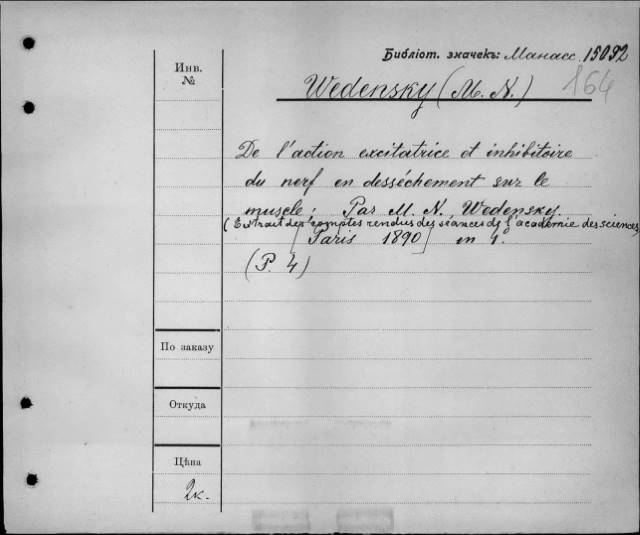 Библіот. значекъ: Манасс. 15092
164
Инв.
№
Wedensky (M. N.)
De l'action excitatrice et inhibitoire
du nerf en desséchement sur le
muscle; Par M. N. Wedensky.
(Extrait des comptes rendus des séances de l'académie des sciences)
[Paris 1890] in 4.
(P. 4)
По заказу
Откуда
Цѣна
2к.